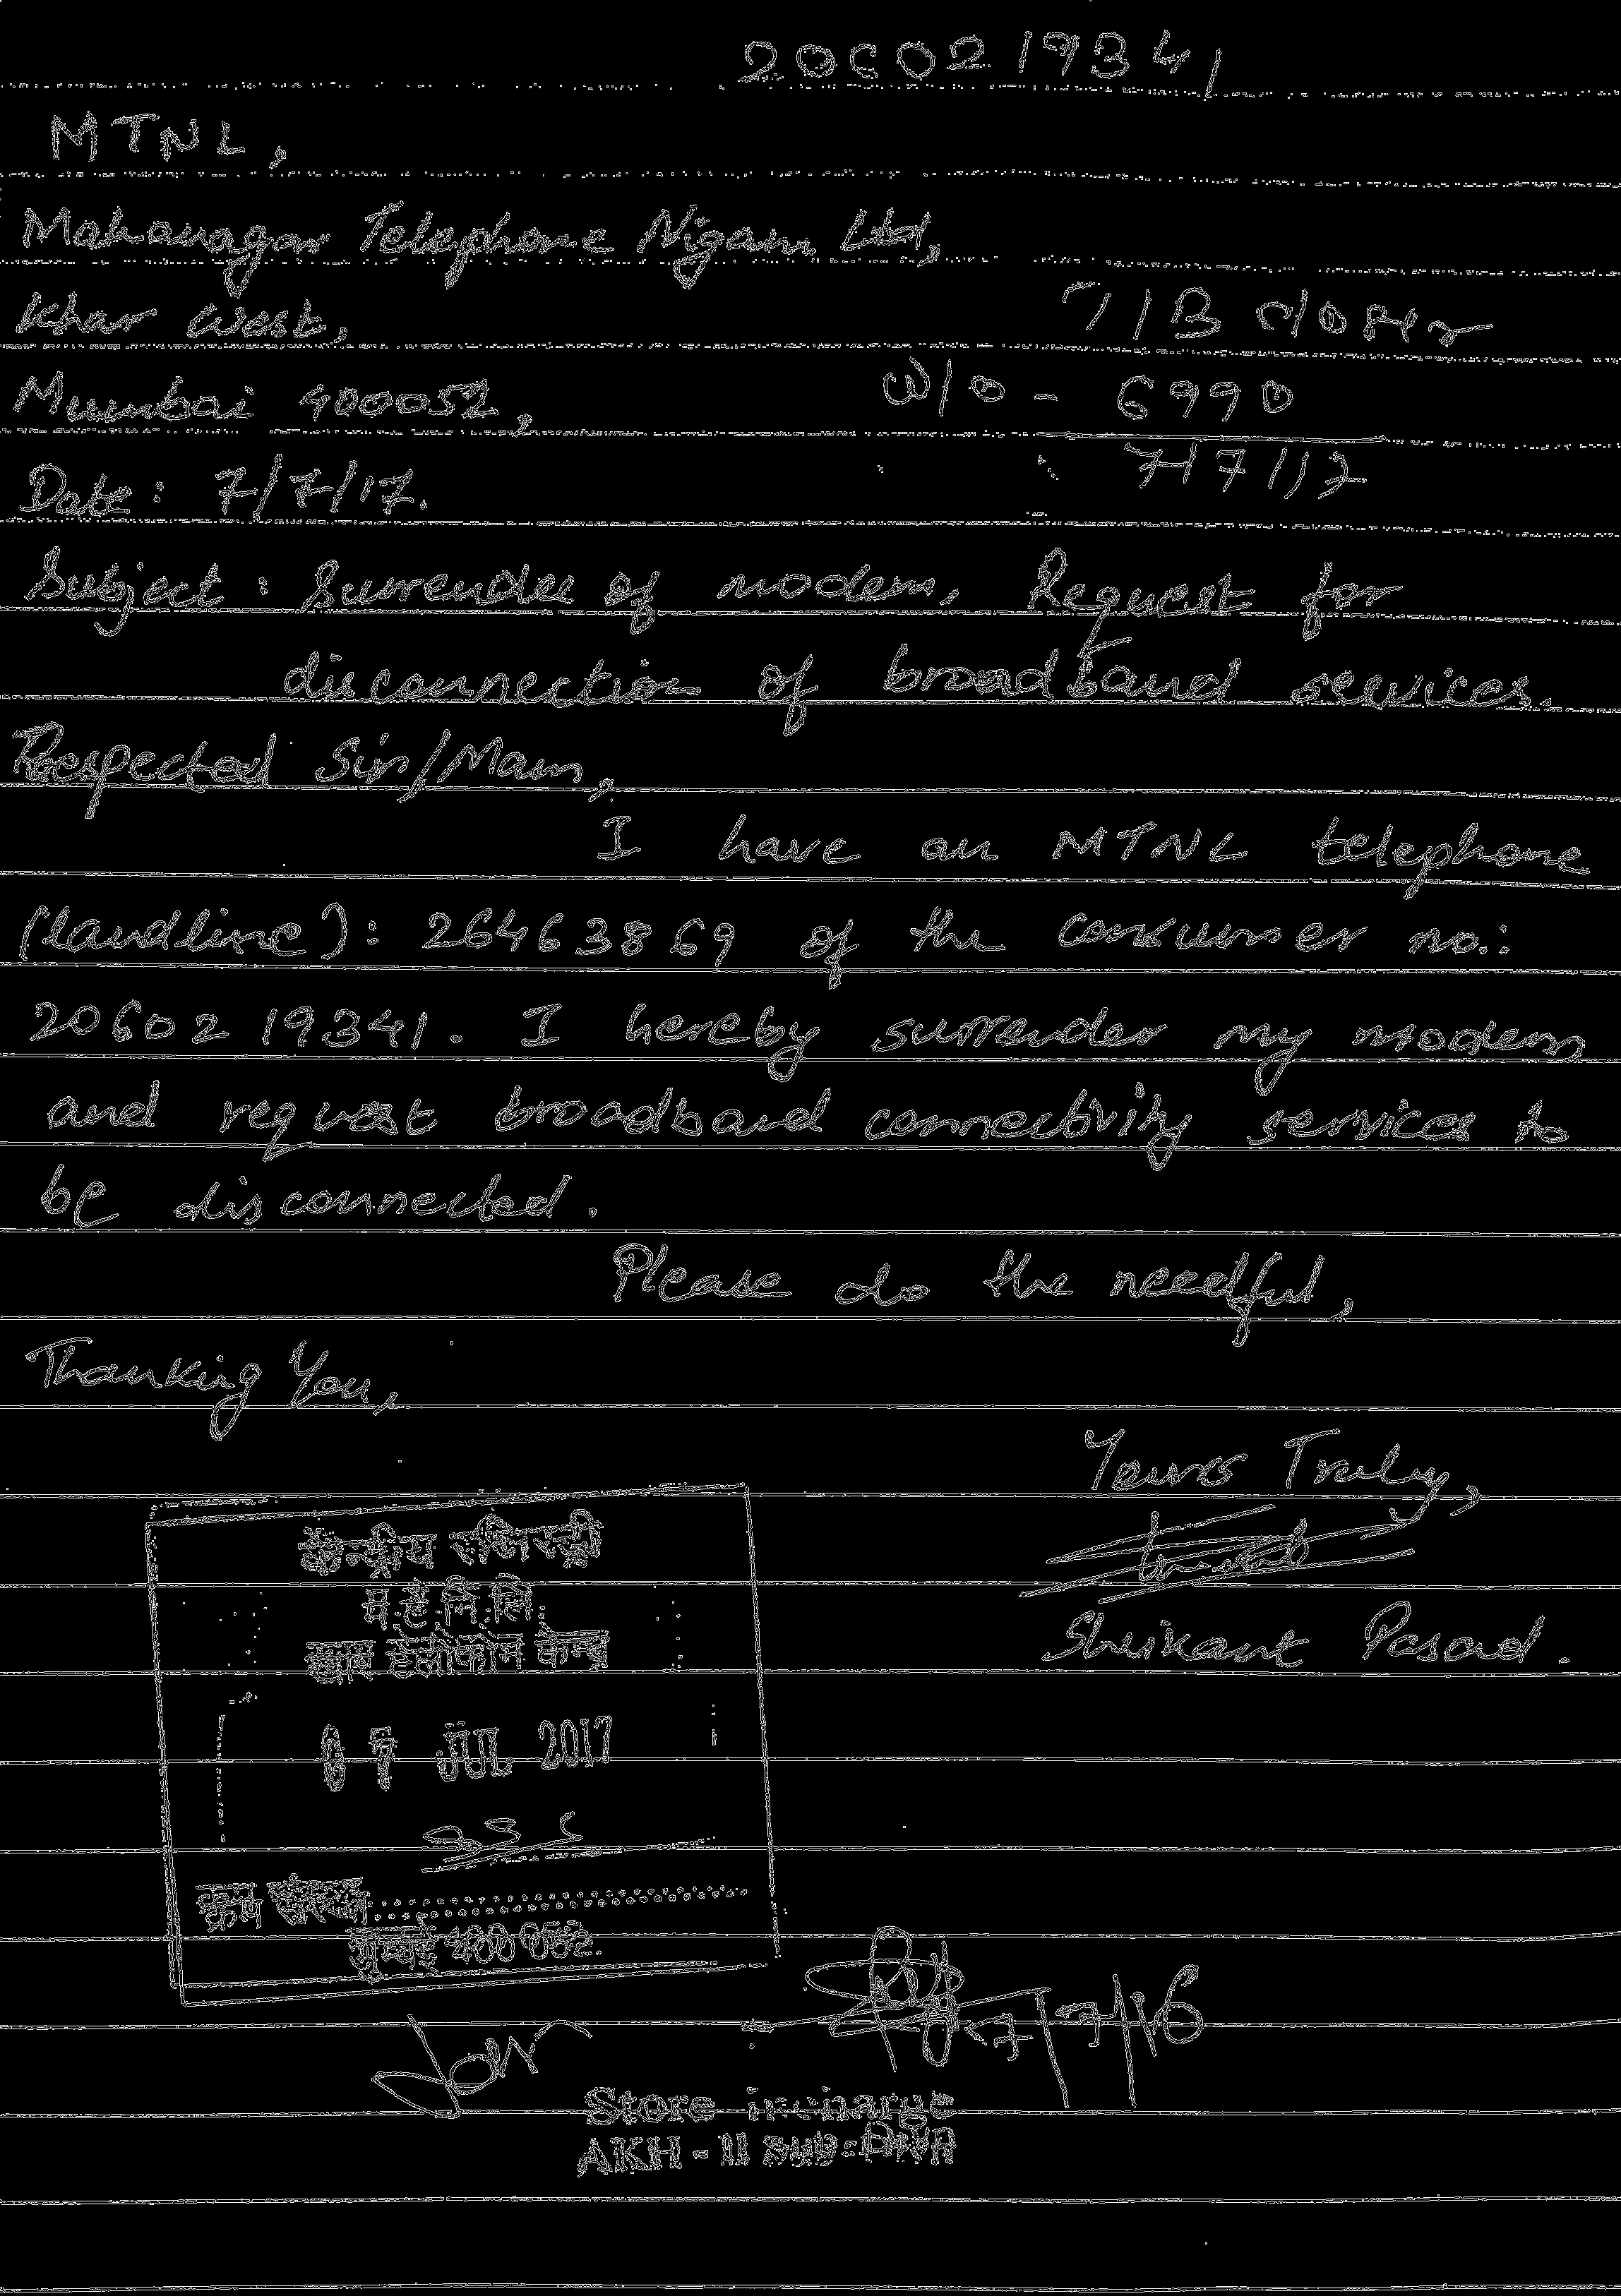 2060219341
MTNL,
Mahanagar Telephone Nigam Ltd,
Khar West,
TIB
Mumbai 400052,
W/O - 6990
Date: 7/7/17.
7/7/17
Subject: Surrender of modem, Request for
disconnection of broadband services.
Respected Sir/Mam,
I have an MTNL telephone
(landline): 26463869 of the consumer no.:
2060219341. I hereby surrender my modem
and request broadband connectivity services to
be disconnected.
Please do the needful,
Thanking You,
Yours Truly,
Shrikant Pasad.
केन्द्रीय रजिस्ट्री
म.टे.नि.लि.
खार टेलीफोन केन्द्र
07 JUL 2017
क्रम संख्या
मुम्बई 400 052.
7/7/16
Store-incharge
AKH-II Sub-Divn